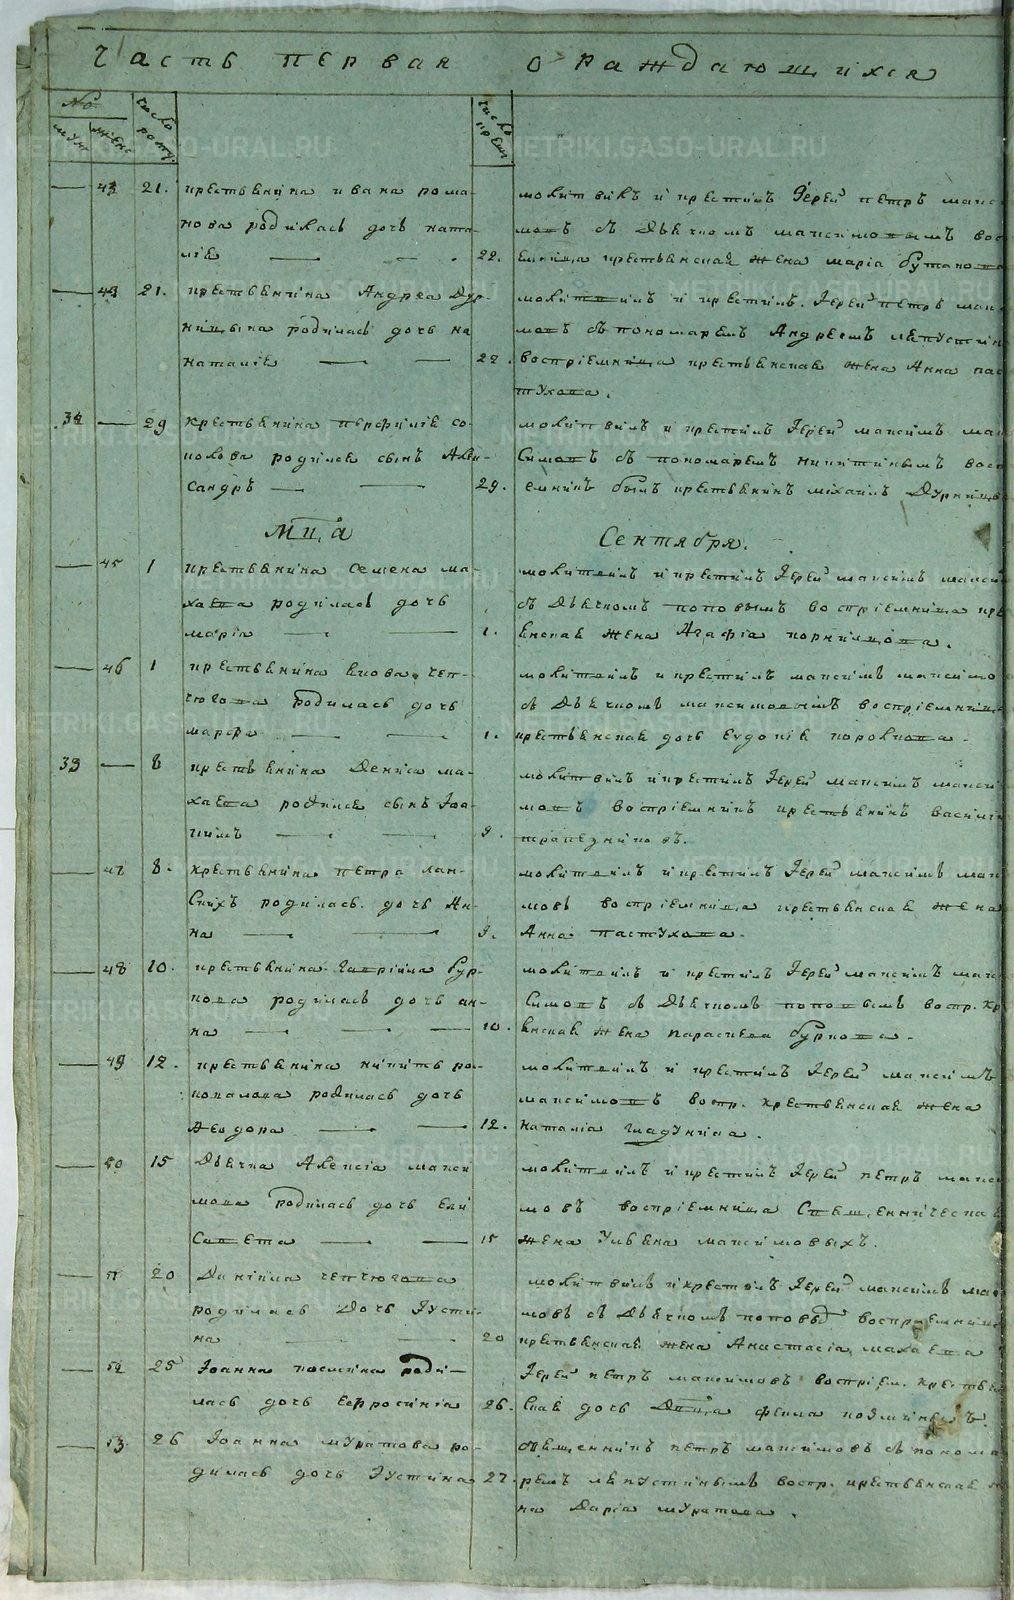 Часть первая о раждающихся
№
муж
женс
число
рожд.
число
крещ.
43 21. крестьянина ивана рома-
нова родилась дочь ната-
лія 22.
молитвилъ и крестилъ Іерей петръ макси
мовъ съ Дьячкомъ максимовымъ вос
емница крестьянская жена марія бутакова
43 21. крестьянина Андрея Дур-
ницына родилась дочь на
наталія 22.
молитвилъ и крестилъ Іерей петръ макси
мовъ съ пономаремъ Андреемъ лепустин
воспріемница крестьянская жена Анна пас
тухова.
34 29 крестьянина перфилія со-
колова родился сынъ Алек-
сандръ 29.
молитвилъ и крестилъ Іерей максимъ мак
Симовъ съ пономаремъ никитинымъ восп
емникъ былъ крестьянинъ михаилъ Дурницы
Мца Сентября.
45 1 крестьянина Семена ма-
хаева родилась дочь
марія 1.
молитвилъ и крестилъ Іерей максимъ макси
съ Дьячкомъ поповымъ воспріемница кре
янская жена Агафія корнилцова.
46 1 крестьянина чеп-
чюгова родилась дочь
марфа 1.
молитвилъ и крестилъ максимъ максимо
съ Дьячкомъ максимовымъ воспріемница
крестьянская дочь Еудокія
35 8 крестьянина Дениса ма-
хаева родился сынъ Іоа-
кимъ 9.
молитвилъ и крестилъ Іерей максимъ макси
мовъ воспріемникъ крестьянинъ василій
трапезниковъ.
47 8. крестьянина петра лан-
Скихъ родилась дочь Ан-
на 9.
молитвилъ и крестилъ Іерей максимъ мак
мовъ воспріемница крестьянская жена
Анна пастухова.
48 10. крестьянина Гавріила бур-
кова родилась дочь ан-
на 10.
молитвилъ и крестилъ Іерей максимъ мак
Симовъ съ Дьячкомъ поповымъ воспр. кр
янская жена параскева буркова.
49 12. крестьянина никиты ро-
коналова родилась дочь
Ѳеодора 12.
молитвилъ и крестилъ Іерей максимъ
максимовъ воспр. крестьянская жена
наталія гладунина.
50 15 Дьячка Алексія макси
мова родилась дочь Ели
Савета 15
молитвилъ и крестилъ Іерей петръ макси
мовъ воспріемница Священническая
жена Ульяна максимовыхъ.
51 20 Даниила чепчюгова
родилась дочь Іусти-
на 20
молитвилъ и крестилъ Іерей максимъ мак
мовъ съ Дьячкомъ поповы воспріемница
крестьянская жена Анастасія махаева
52 25 Іоанна роди-
лась дочь Евфросинія 26.
Іерей петръ максимовъ воспріем. крестьян
Ская дочь Двца фекла
53 26 Іоанна муратова ро-
дилась дочь Іустина 27.
Священникъ петръ максимовъ съ понома
ремъ лепустинымъ воспр. крестьянская же
на Дарія муратова.
METRIKI.GASO-URAL.RU